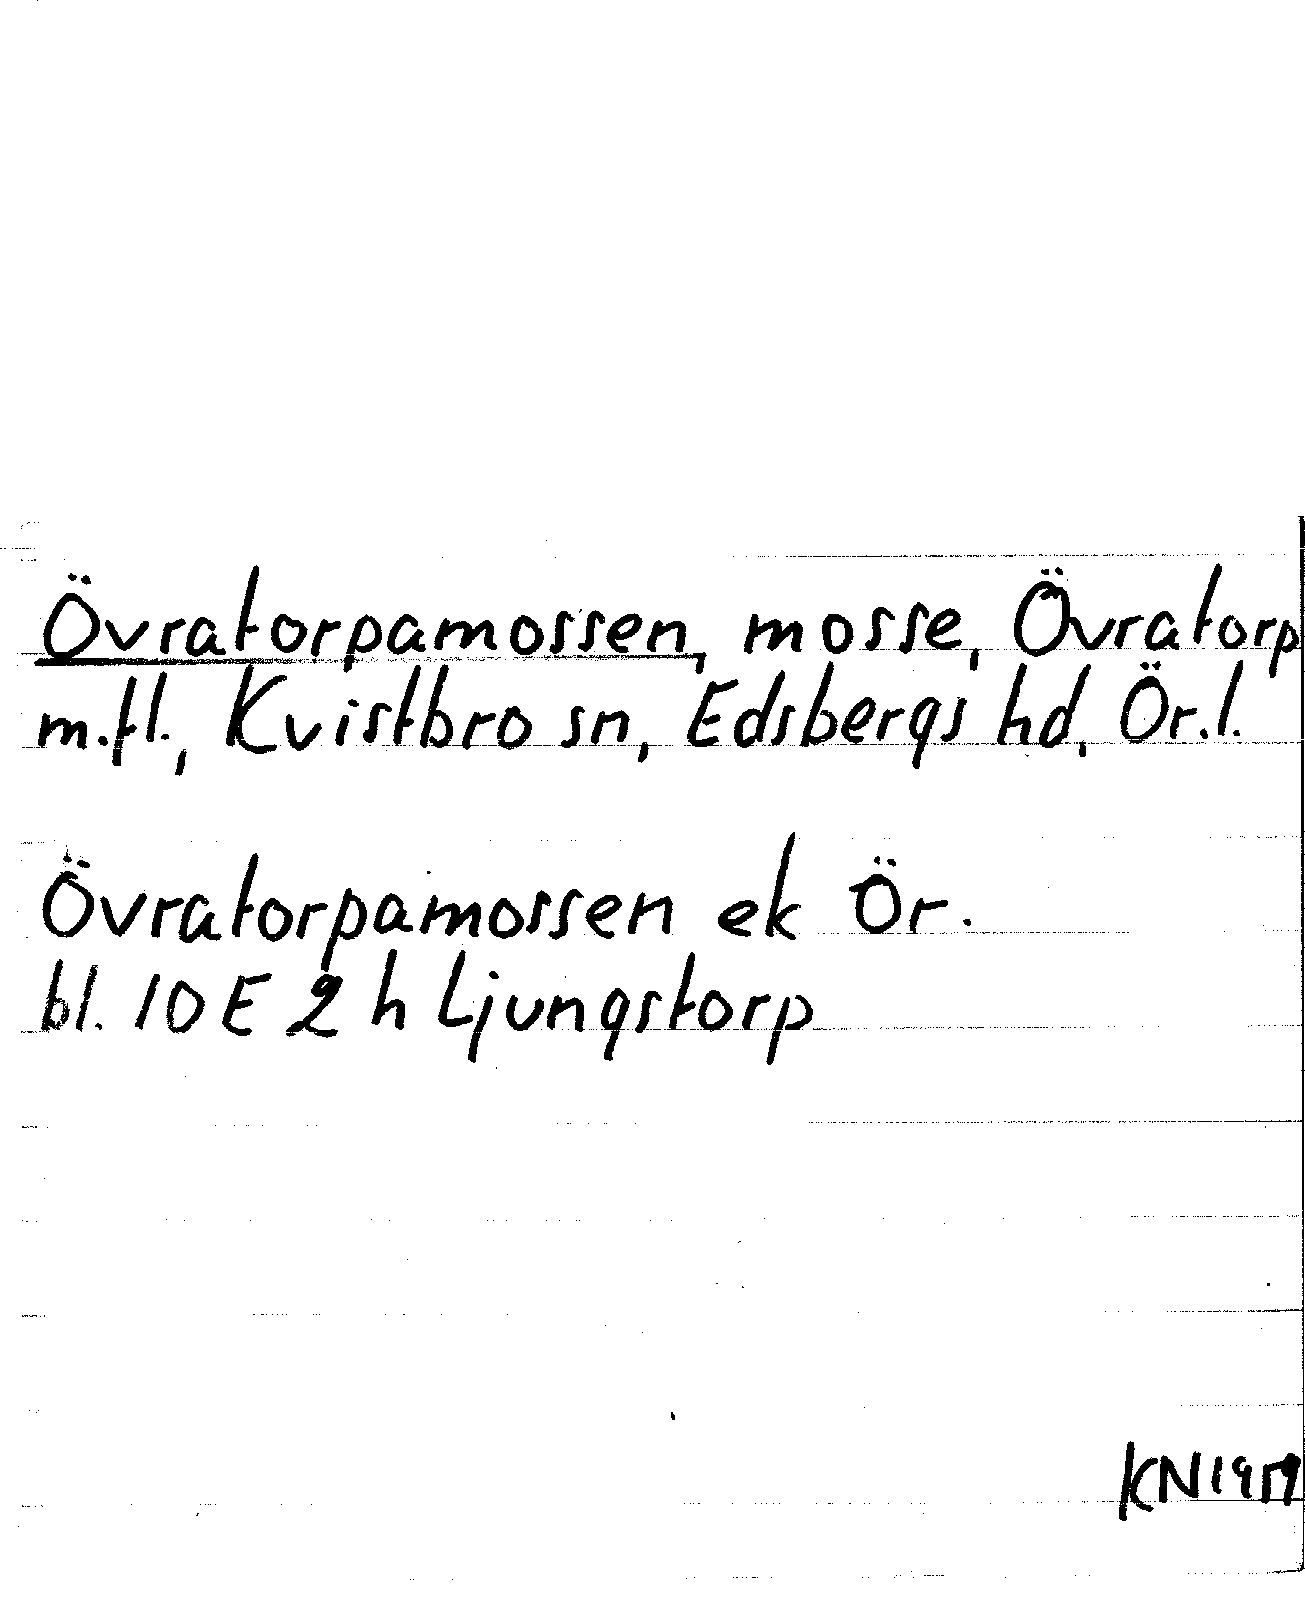 Övratorpamossen, mosse, Övratorp
m.fl., Kvistbro sn, Edsbergs hd, Ör.l.
Övratorpamossen ek Ör.
bl. 10 E 2 h Ljungstorp
KN 1959